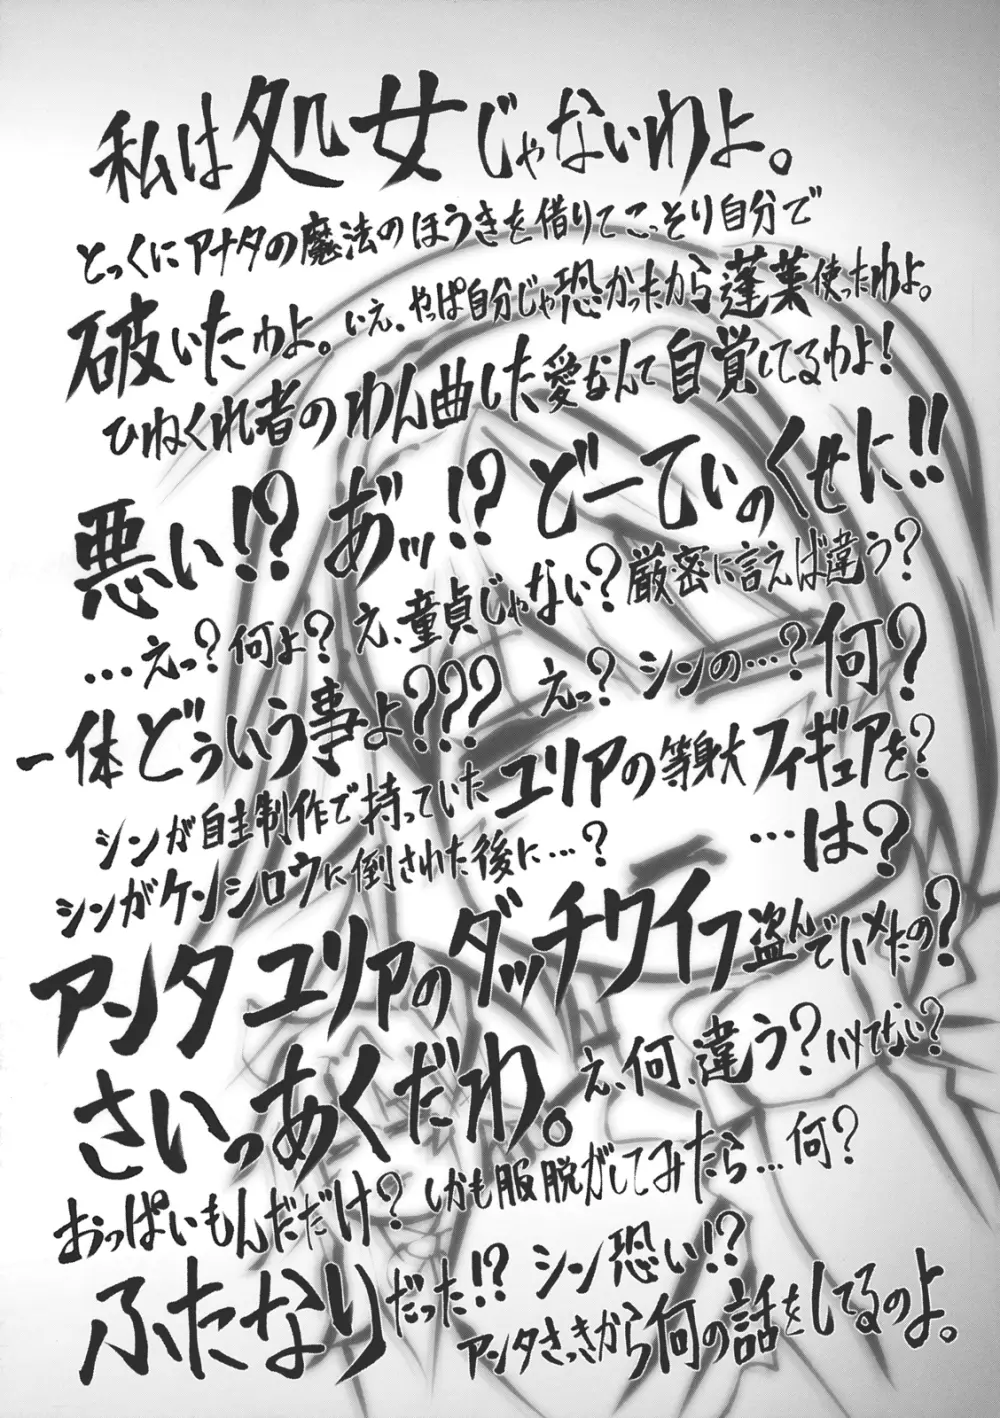 私は処女じゃないわよ。
とっくにアナタの魔法のほうきを借りてこっそり自分で
破いたわよ。いえ、やっぱ自分じゃ恐かったから蓬莱使ったわよ。
ひねくれ者のわん曲した愛なんて自覚してるわよ!
悪い!? あ゛ッ!? どーてぃのくせに!!
…えっ?何よ?え、童貞じゃない?厳密に言えば違う?
一体どういう事よ??? えっ?シンの…?何?
シンが自主制作で持っていたユリアの等身大フィギュアを?
シンがケンシロウに倒された後に…? …は?
アンタユリアのダッチワイフ盗んでハメたの?
さいっあくだわ。え、何、違う?ハメてない?
おっぱいもんだだけ?しかも服脱がしてみたら…何?
ふたなりだった!? シン恐い!?
アンタさっきから何の話をしてるのよ。